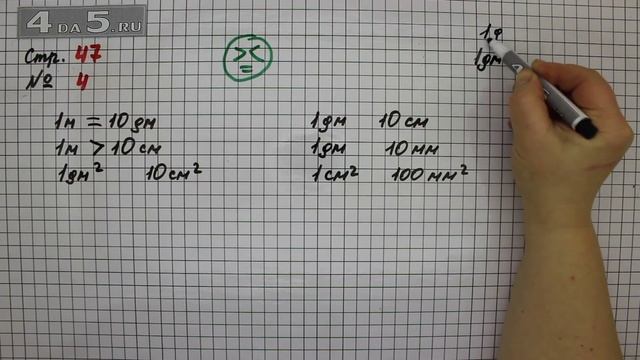 4 ДА 5.RU
Стр. 47
№ 4
> <
=
1м = 10 дм
1м > 10 см
1 дм² 10 см²
1 дм 10 см
1 дм 10 мм
1 см² 100 мм²
1
1 дм